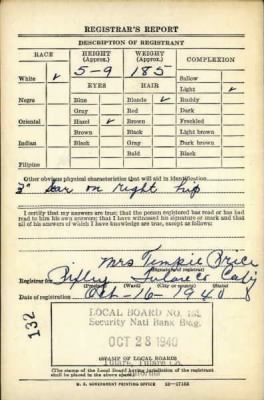 REGISTRAR'S REPORT
DESCRIPTION OF REGISTRANT
RACE HEIGHT (Approx.) WEIGHT (Approx.) COMPLEXION
5-9 185
White ✓ Sallow
EYES HAIR Light ✓
Negro Blue Blonde ✓ Ruddy
Gray Red Dark
Oriental Hazel ✓ Brown Freckled
Brown Black Light brown
Indian Black Gray Dark brown
Bald Black
Filipino
Other obvious physical characteristics that will aid in identification
3" Scar on right hip
I certify that my answers are true; that the person registered has read or has had
read to him his own answers; that I have witnessed his signature or mark and that
all of his answers of which I have knowledge are true, except as follows:
Mrs Price
(Signature of registrar)
Registrar for Pixley Tulare Co Calif
(Precinct) (Ward) (City or county) (State)
Date of registration Oct-16-1940
132
LOCAL BOARD NO.
Security Natl Bank Bldg.
OCT 28 1940
(STAMP OF LOCAL BOARD)
(The stamp of the Local Board having jurisdiction of the registrant
shall be placed in the above space.)
U. S. GOVERNMENT PRINTING OFFICE 16-17105